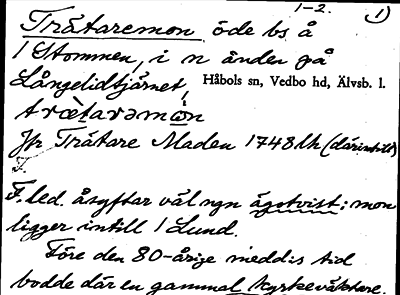 1-2. 1)
Trätaremon öde bs å
1 Stommen, i n änden på
Långelidtjärnet, Håbols sn, Vedbo hd, Älvsb. l.
Jfr Trätare Maden 1748 lh (därintill)
F.
F.led. åsyftar väl ngn ägotvist; mon
ligger intill 1 Lund.
Före den 80-årige medd:s tid
bodde där en gammal kyrkeväktare.